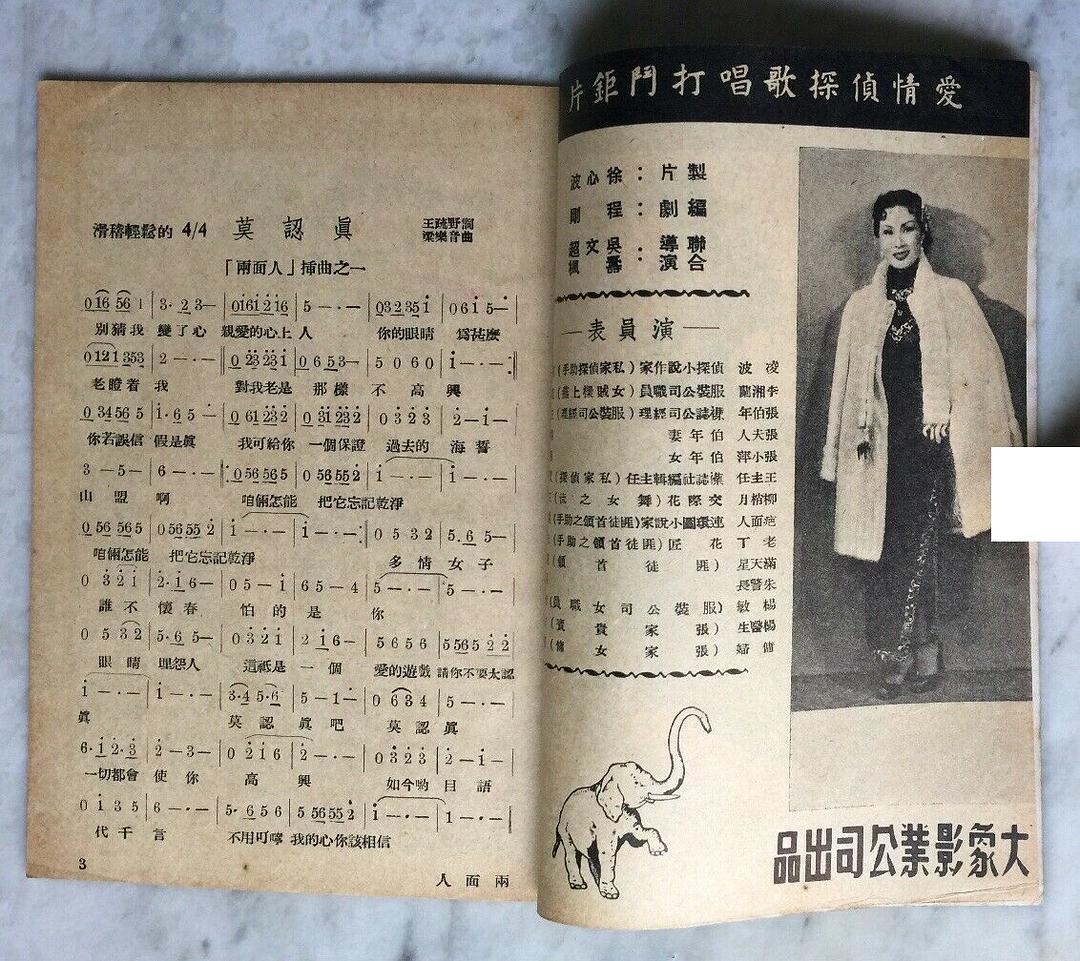 滑稽輕鬆的 4/4 莫認眞
王疏野詞
梁樂音曲
「兩面人」插曲之一
0 16 56 1 | 3· 2 3— | 0161216 | 5 — · — | 032351 | 0 6 1 5—
別猜我 變了心 親愛的心上人 你的眼睛 爲甚麽
0121353 | 2 — · — | 0 23231 | 0 6 5 3— | 5 0 6 0 | 1 — · —
老瞪着 我 對我老是 那樣 不 高 興
0 34565 | 1·6 5 — | 0 61232 | 0 31232 | 0 3 2 3 | 2—1—
你若誤信 假是眞 我可給你 一個保證 過去的 海 誓
3 —5— | 6 — · — | 0 56565 | 0 56552 | 1 — · — | 1 — · —
山 盟 啊 咱倆怎能 把它忘記乾淨
0 56 565 | 056552 | 1 — · — | 1 — · — | 0 5 3 2 | 5.6 5—
咱倆怎能 把它忘記乾淨 多 情 女 子
0 3 2 1 | 2·1 6— | 0 5 — 1 | 6 5 — 4 | 5 — · — | 5 — · —
誰 不 懷 春 怕 的 是 你
0 5 3 2 | 5·6 5— | 0 3 2 1 | 2 1 6— | 5 6 5 6 | 556522
眼 睛 埋怨人 這祗是 一 個 愛的遊戲 請你不要太認
1 — · — | 1 — · — | 3·4 5·6 | 5—1— | 0 6 3 4 | 5 — · —
眞 莫 認 眞 吧 莫 認 眞
6·1 2·3 | 2 —3— | 0 2 1 6 | 2 — · — | 0 3 2 3 | 2—1—
一切都會 使 你 高 興 如今喲 目 語
0 1 3 5 | 6 — · — | 5· 6 5 6 | 5 56552 | 1 — · — | 1 — · —
代 千 言 不用叮嚀 我的心你該相信
3
兩面人
愛情偵探歌唱打鬥鉅片
製片：徐心波
編劇：程剛
聯合導演：吳文超
壽楓
演員表
凌波 偵探小說作家(私家偵探助手)
李湘蘭 服裝公司職員(女賊樑上燕)
張伯年 雜誌公司經理(服裝公司經理)
張夫人 伯年妻
張小萍 伯年女
王主任 雜誌社編輯主任(私家偵探)
柳梢月 交際花(舞女之流)
疤面人 連環圖小說家(匪徒首領之助手)
老丁 花匠(匪徒首領之助手)
滿天星 (匪徒首領)
朱警長
楊敏 (服裝公司女職員)
楊醫生 (張家貴賓)
傭婦 (張家女傭)
大象影業公司出品